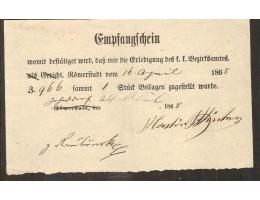 Empfangschein
womit bestätiget wird, daß mir die Erledigung des k. k. Bezirksamtes,
als Gericht, Römerstadt vom 16 April 1868
Z. 966 sammt 1 Stück Beilagen zugestellt wurde.
Römerstadt, den 24 April 1868